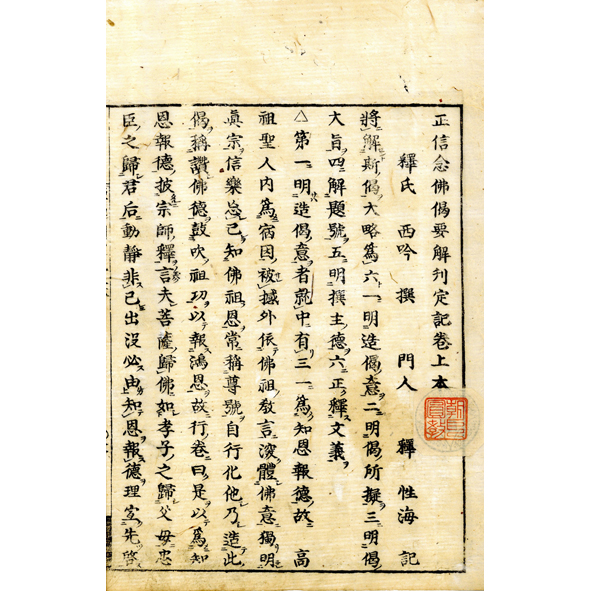 正信念佛偈要解刋定記卷上本
釋氏 西吟 撰 門人 釋 性海 記
將解斯偈大略爲六一明造偈意二明偈所擬三明偈
大旨四解題號五明撰主德六正釋文義
△第一明造偈意者就中有三一爲知恩報德故 高
祖聖人内爲宿因被摵外依佛祖教言深體佛意獨明
眞宗信樂忘己知佛祖恩常稱尊號自行化他乃造此
偈稱讚佛德鼓吹祖功以報鴻恩故行卷曰是以爲知
恩報德披宗師釋言夫菩薩歸佛如孝子之歸父母忠
臣之歸君后動靜非己出沒必由知恩報德理宜先啓